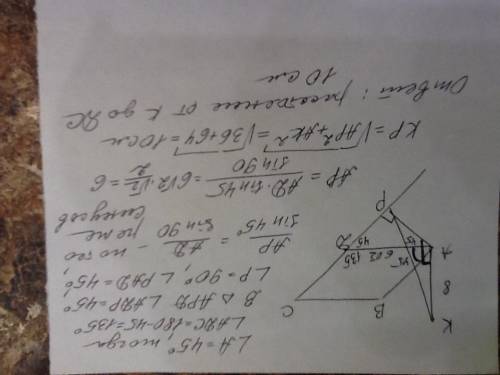 ∠A = 45°, тогда
∠ADC = 180-45 = 135°
В △ APD ∠ADP = 45°
∠P = 90°, ∠PAD = 45°,
AP/sin 45° = AD/sin 90 - по тео
реме
синусов
AP = AD · sin 45/sin 90 = 6√2 · √2/2 = 6
KP = √AP² + AK² = √36+64 = 10 см
Ответ: расстояние от K до DC
10 см
K
8
A
B
C
D
P
45
45
45
6√2
135